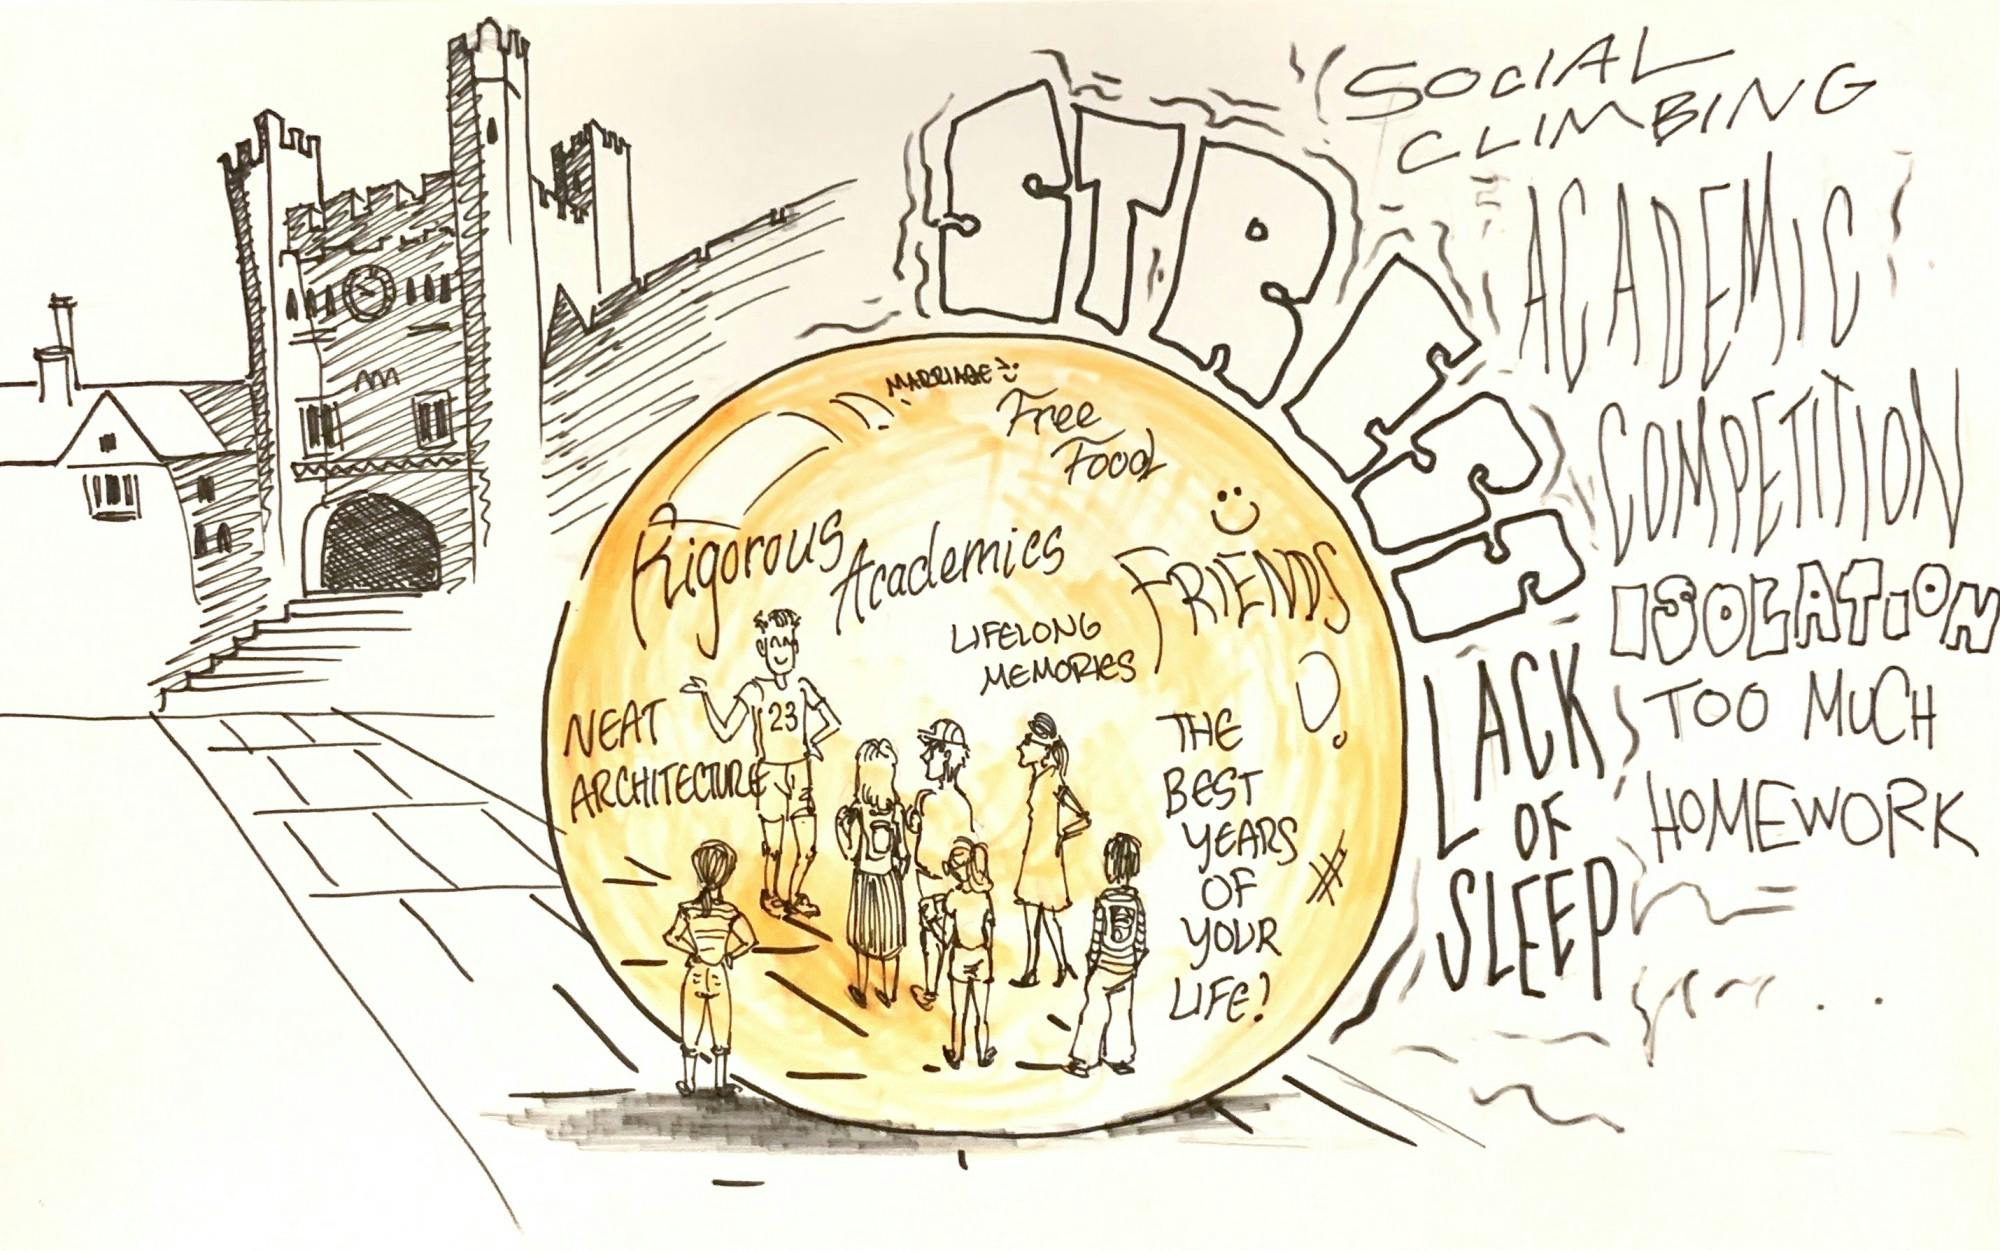 SOCIAL
CLIMBING
STRESS
ACADEMIC
COMPETITION
ISOLATION
TOO MUCH
HOMEWORK
LACK
OF
SLEEP
MARRIAGE
Free
Food
Rigorous
Academics
FRIENDS
LIFELONG
MEMORIES
NEAT
ARCHITECTURE
23
THE
BEST
YEARS
OF
YOUR
LIFE!